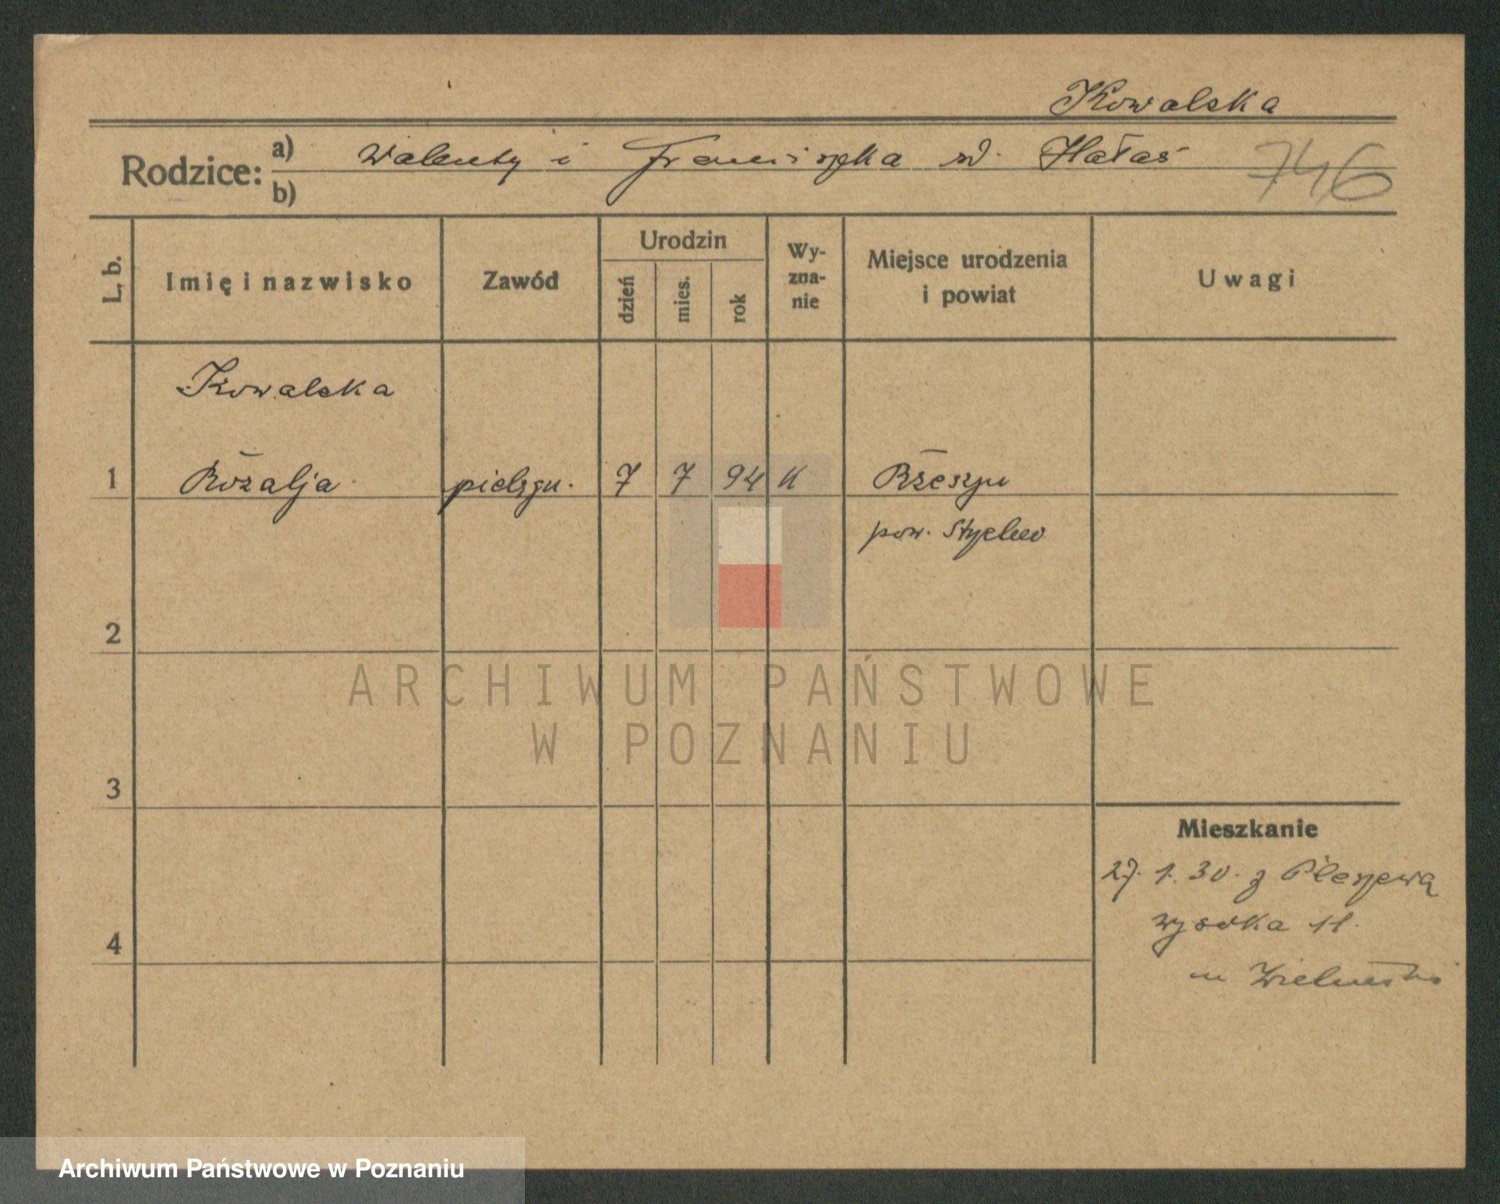 Kowalska
Rodzice: a) Walenty i Franciszka rd. Hałaś
746
b)
L. b.
Imię i nazwisko
Zawód
Urodzin
dzień
mies.
rok
Wy-
zna-
nie
Miejsce urodzenia
i powiat
Uwagi
Kowalska
1 Rozalja pielęgn. 7 7 94 K
pow.
2
ARCHIWUM PAŃSTWOWE
W POZNANIU
3
Mieszkanie
27. 1. 30. z Pleszewa
Wysoka 11.
4
Archiwum Państwowe w Poznaniu